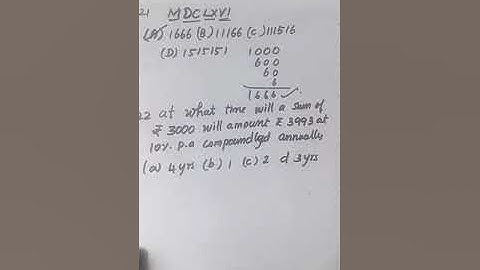 21 MDCLXVI
(A) 1666 (B) 11166 (C) 111516
(D) 1515151 1000
600
60
6
1666
22 at what time will a sum of
₹ 3000 will amount ₹ 3993 at
10%. p.a compoundged annually
(a) 4 yrs (b) 1 (c) 2 d 3 yrs